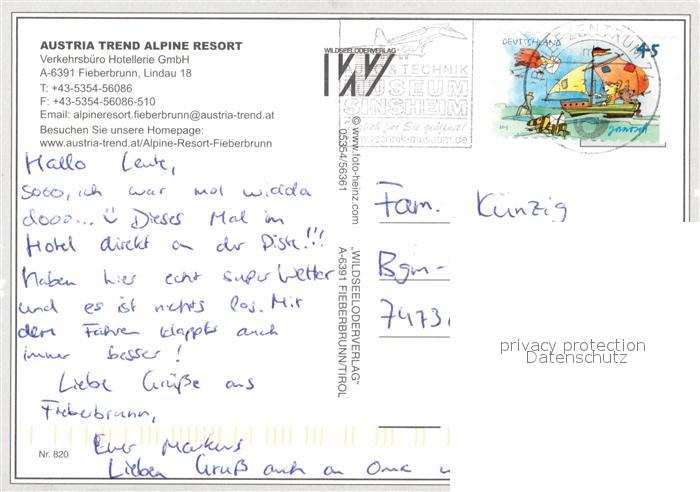 AUSTRIA TREND ALPINE RESORT
Verkehrsbüro Hotellerie GmbH
A-6391 Fieberbrunn, Lindau 18
T: +43-5354-56086
F: +43-5354-56086-510
Email: alpineresort.fieberbrunn@austria-trend.at
Besuchen Sie unsere Homepage:
www.austria-trend.at/Alpine-Resort-Fieberbrunn
Hallo Leute,
sooo, ich war mol widda
dooo... Dieses Mal im
Hotel direkt an der Piste!!!
Haben hier echt super Wetter
und es ist nichts los. Mit
dem Fahren klappts auch
immer besser!
Liebe Grüße aus
Fieberbrunn,
Euer Markus
Lieben Gruß auch an Oma
Nr. 820
WILDSEELODERVERLAG
© www.foto-heinz.com
05354/56361
„WILDSEELODERVERLAG"
A-6391 FIEBERBRUNN/TIROL
& TECHNIK
MUSEUM
SINSHEIM
für Sie geöffnet
www.technik-museum.de
DEUTSCHLAND
45
BRIEFZENTRUM
janosch
Fam. Künzig
Bgm-
7473
privacy protection
Datenschutz